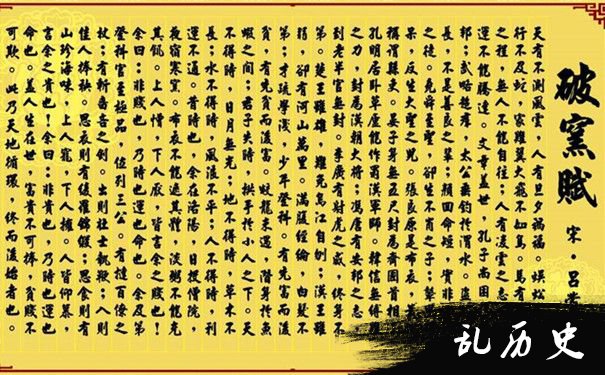 破窯賦
宋 呂
天有不測風雲，人有旦夕禍福。蜈蚣
行不及蛇，家雞翼大飛不如鳥。馬有
之程，無人不能自往；人有凌雲之志
運不能騰達。文章蓋世，孔子尚困
邦；武略超群，太公垂釣於渭水。盜
長，不是善良之輩；顏回命短，實非
之徒。堯舜至聖，卻生不肖之子；瞽
呆，反生大聖之兒。張良原是布衣，蕭
稱謂縣吏。晏子身無五尺，封為齊國首相
孔明居卧草廬，能作蜀漢軍師。韓信無縛雞
之力，封為漢朝大將；馮唐有安邦之志
到老半官無封。李廣有射虎之威，終身不
第。楚王雖雄，難免烏江自刎；漢王雖
弱，卻有河山萬里。滿腹經綸，白髮不
第；才疏學淺，少年登科。有先富而後
貧，有先貧而後富。蛟龍未遇，潛身於魚
蝦之間；君子失時，拱手於小人之下。天
不得時，日月無光；地不得時，草木不
長；水不得時，風浪不平；人不得時，利
運不通。昔時也，余在洛陽，日投僧院，
夜宿寒窯。布衣不能遮其體，淡粥不能充
其飢。上人憎，下人厭，皆言余之賤也！
余曰：非賤也，乃時也運也命也。余及第
登科，官至極品，位列三公。有撻百僚之
杖；有斬嗇吝之劍。出則壯士執鞭；入則
佳人捧秧。思衣則有綾羅錦緞；思食則有
山珍海味。上人寵，下人擁。人皆仰慕，
言余之貴也！余曰：非貴也，乃時也運也
命也。蓋人生在世，富貴不可捧，貧賤不
可欺。此乃天地循環，終而復始者也。
乱历史